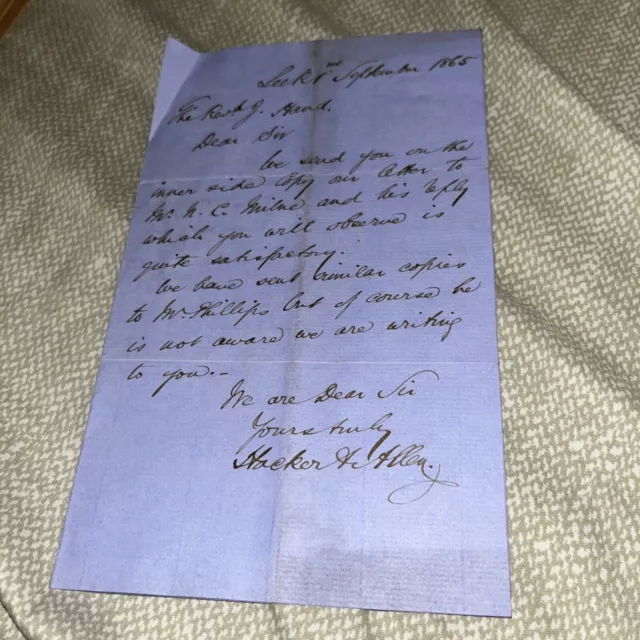 Leek 1st September 1865
The Revd J. Hand.
Dear Sir
We send you on the
inner side Copy our letter to
Mr. N. C. Milne and his reply
which you will observe is
quite satisfactory.
We have sent similar copies
to Mr Phillips but of course he
is not aware we are writing
to you.-
We are Dear Sir
Yours truly
Hacker & Allen